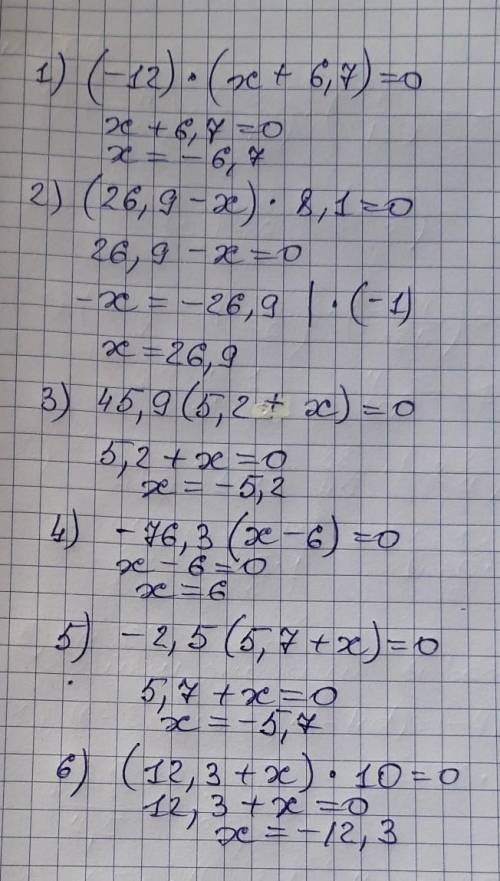 1) (-12) · (x + 6,7) = 0
x + 6,7 = 0
x = -6,7
2) (26,9 - x) · 8,1 = 0
26,9 - x = 0
-x = -26,9 | · (-1)
x = 26,9
3) 45,9 (5,2 + x) = 0
5,2 + x = 0
x = -5,2
4) -76,3 (x - 6) = 0
x - 6 = 0
x = 6
5) -2,5 (5,7 + x) = 0
5,7 + x = 0
x = -5,7
6) (12,3 + x) · 10 = 0
12,3 + x = 0
x = -12,3